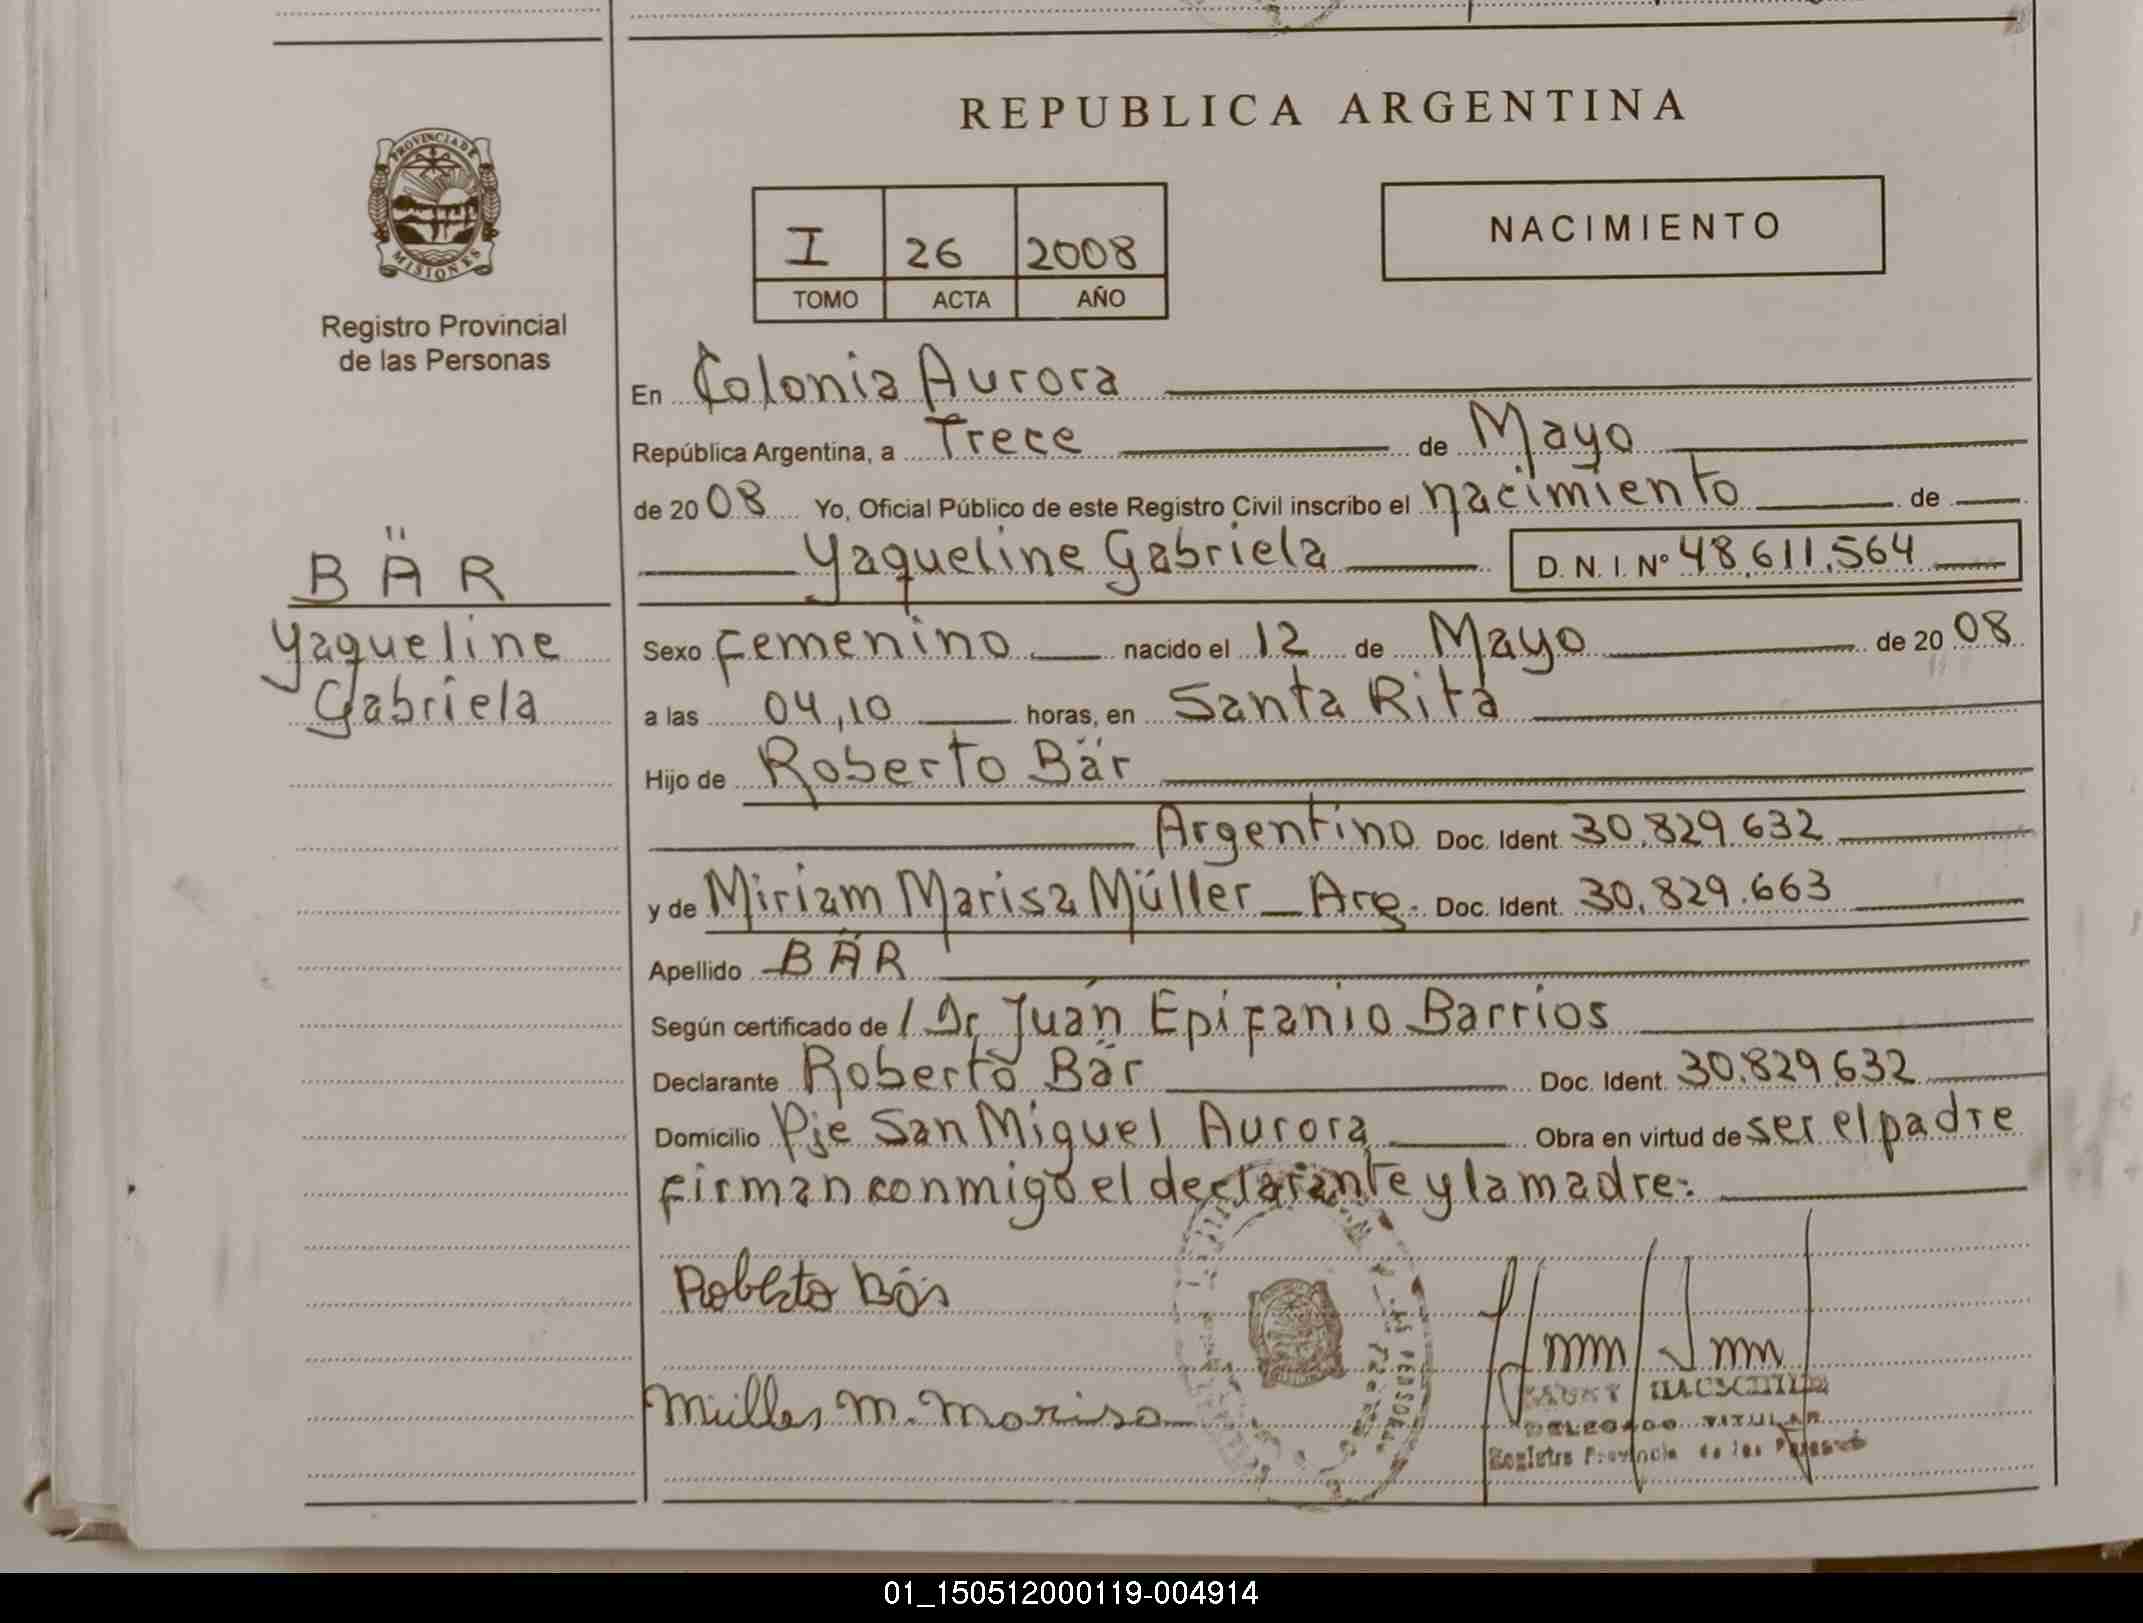 PROVINCIA DE
MISIONES
Registro Provincial
de las Personas
BÄR
Yaqueline
Gabriela
REPUBLICA ARGENTINA
I 26 2008
TOMO ACTA AÑO
NACIMIENTO
En Colonia Aurora
República Argentina, a Trece de Mayo
de 2008 Yo, Oficial Público de este Registro Civil inscribo el nacimiento de
Yaqueline Gabriela D. N. I. Nº 48.611.564
Sexo Femenino nacido el 12 de Mayo de 2008
a las 04,10 horas, en Santa Rita
Hijo de Roberto Bär
Argentino Doc. Ident. 30.829.632
y de Miriam Marisa Müller Arg. Doc. Ident. 30.829.663
Apellido BÄR
Según certificado de / Dr Juán Epifanio Barrios
Declarante Roberto Bär Doc. Ident. 30.829.632
Domicilio Pje San Miguel Aurora Obra en virtud de ser el padre
Firman conmigo el declarante y la madre:
Roberto Bär
Müller M. Marisa
DELEGADO TITULAR
Registro Provincia de las Personas
01_150512000119-004914